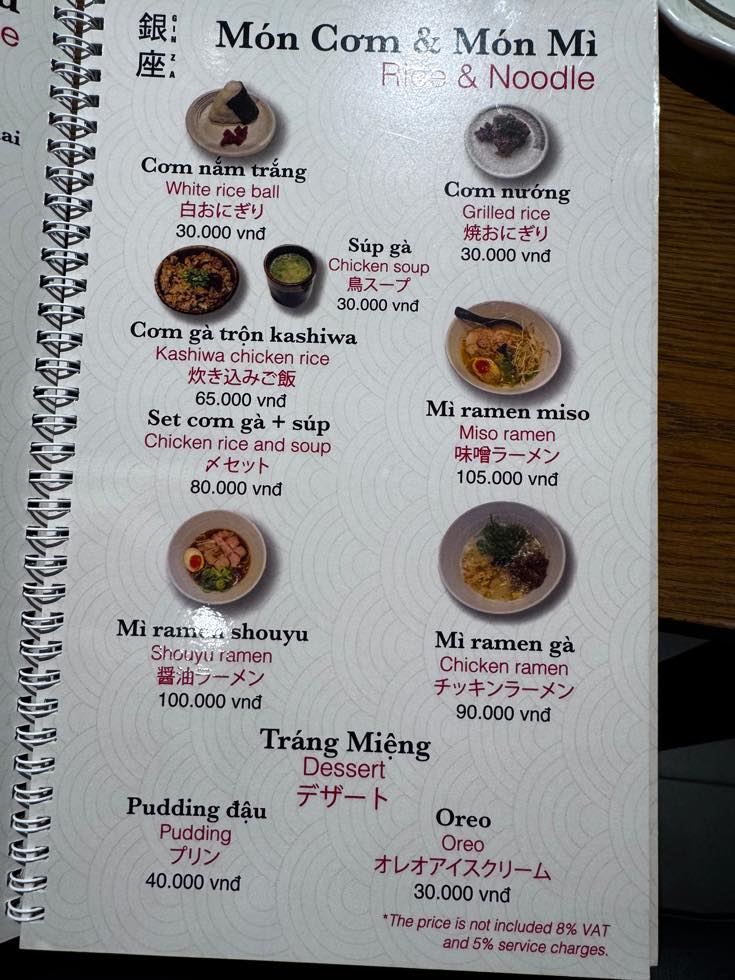 銀座
GINZA
Món Cơm & Món Mì
Rice & Noodle
Cơm nắm trắng
White rice ball
白おにぎり
30.000 vnđ
Cơm nướng
Grilled rice
焼おにぎり
30.000 vnđ
Súp gà
Chicken soup
鳥スープ
30.000 vnđ
Cơm gà trộn kashiwa
Kashiwa chicken rice
炊き込みご飯
65.000 vnđ
Set cơm gà + súp
Chicken rice and soup
〆セット
80.000 vnđ
Mì ramen miso
Miso ramen
味噌ラーメン
105.000 vnđ
Mì ramen shouyu
Shouyu ramen
醤油ラーメン
100.000 vnđ
Mì ramen gà
Chicken ramen
チッキンラーメン
90.000 vnđ
Tráng Miệng
Dessert
デザート
Pudding đậu
Pudding
プリン
40.000 vnđ
Oreo
Oreo
オレオアイスクリーム
30.000 vnđ
*The price is not included 8% VAT
and 5% service charges.